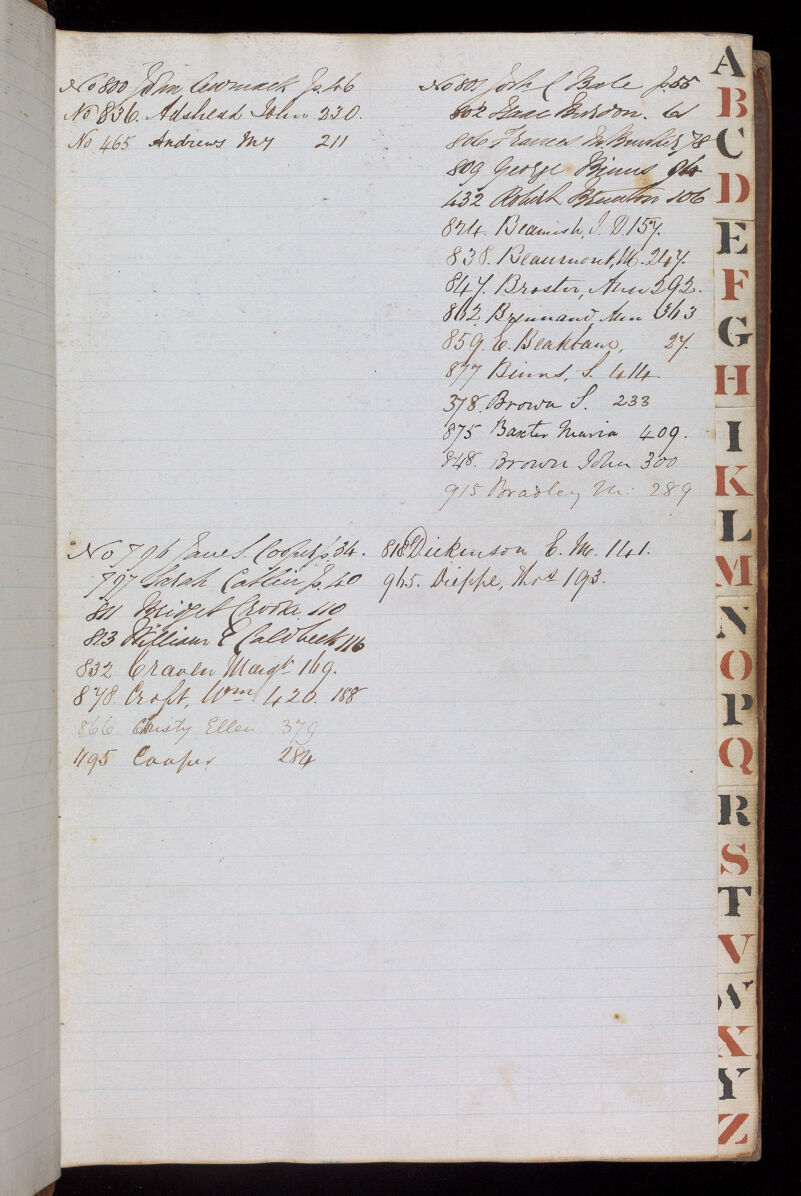 No 800 John Cormack p. 46
No 836. Adshead John 230.
No 465 Andrews My 211
No 801 Josh C Bale p. 55
802 Isaac Burdon. 61
806 Frances 78
809 George Binns
432 Robert Brunton 106
824. Beamish, J. D. 157.
838. Beaumont, W. 247.
847. Broster, Ann 292.
862. Brennand, Ann 363
859. E. Beakbane, 27.
877 Binns, S. 414.
378. Brown S. 233
875 Baxter Maria 409.
848. Brown John 300
915 Bradley M. 289
No 796 Jane S. Cooper p. 34.
797 Sarah Catlin p. 40
811 Bridget Crooke 110
813 William E Caldbeck 116
832 Craven Margt. 169.
878. Croft, Wm. 420. 188
866. Christy Ellen. 379
495 Cooper 284
818 Dickinson E. M. 141.
965. Dieppe, Thos 193.
A
B
C
D
E
F
G
H
I
K
L
M
N
O
P
Q
R
S
T
V
W
X
Y
Z